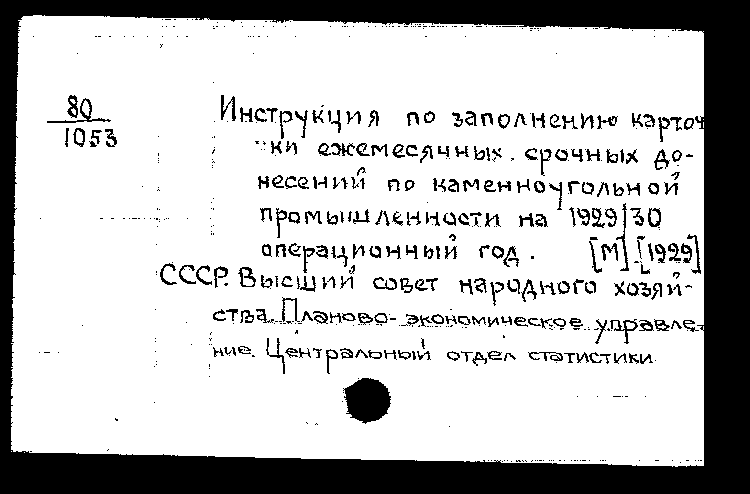 80
1053
Инструкция по заполнению карточ
ки ежемесячных срочных до-
несений по каменноугольной
промышленности на 1929/30
операционный год. [М]. [1929]
СССР. Высший совет народного хозяй-
ства. Планово-экономическое управле-
ние. Центральный отдел статистики